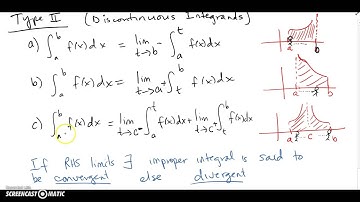 Type II (Discontinuous Integrands)
a) ∫ₐᵇ f(x)dx = lim t→b⁻ ∫ₐᵗ f(x)dx
b) ∫ₐᵇ f(x)dx = lim t→a⁺ ∫ₜᵇ f(x)dx
c) ∫ₐᵇ f(x)dx = lim t→c⁻ ∫ₐᵗ f(x)dx + lim t→c⁺ ∫ₜᵇ f(x)dx
a b
a b
a c b
If RHS limits ∃ improper integral is said to
be convergent else divergent
RECORDED WITH
SCREENCAST-O-MATIC